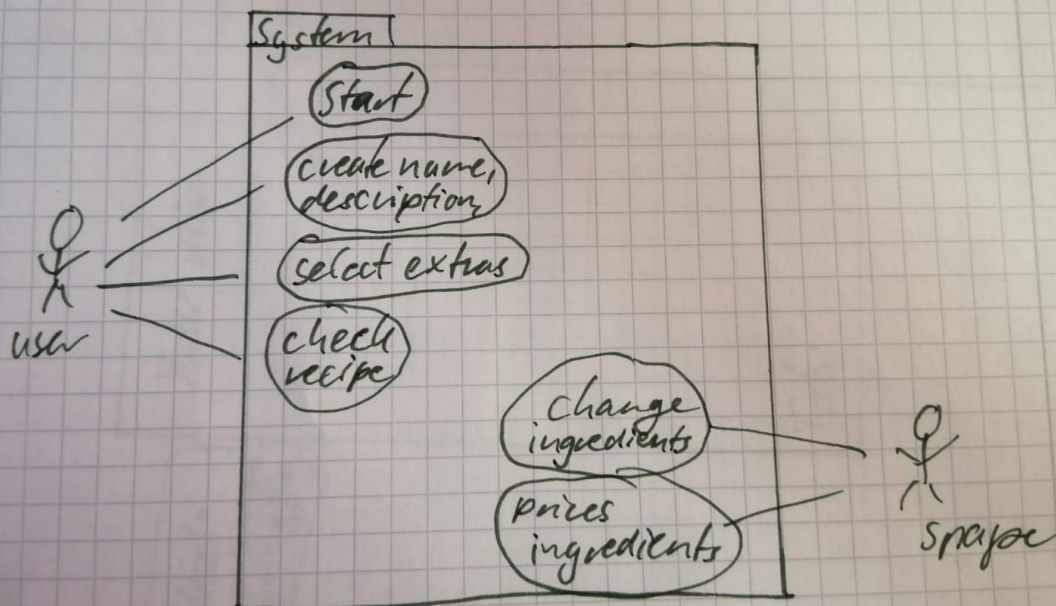 System
Start
create name,
description,
select extras
check
recipe
user
change
ingredients
prices
ingredients
snape